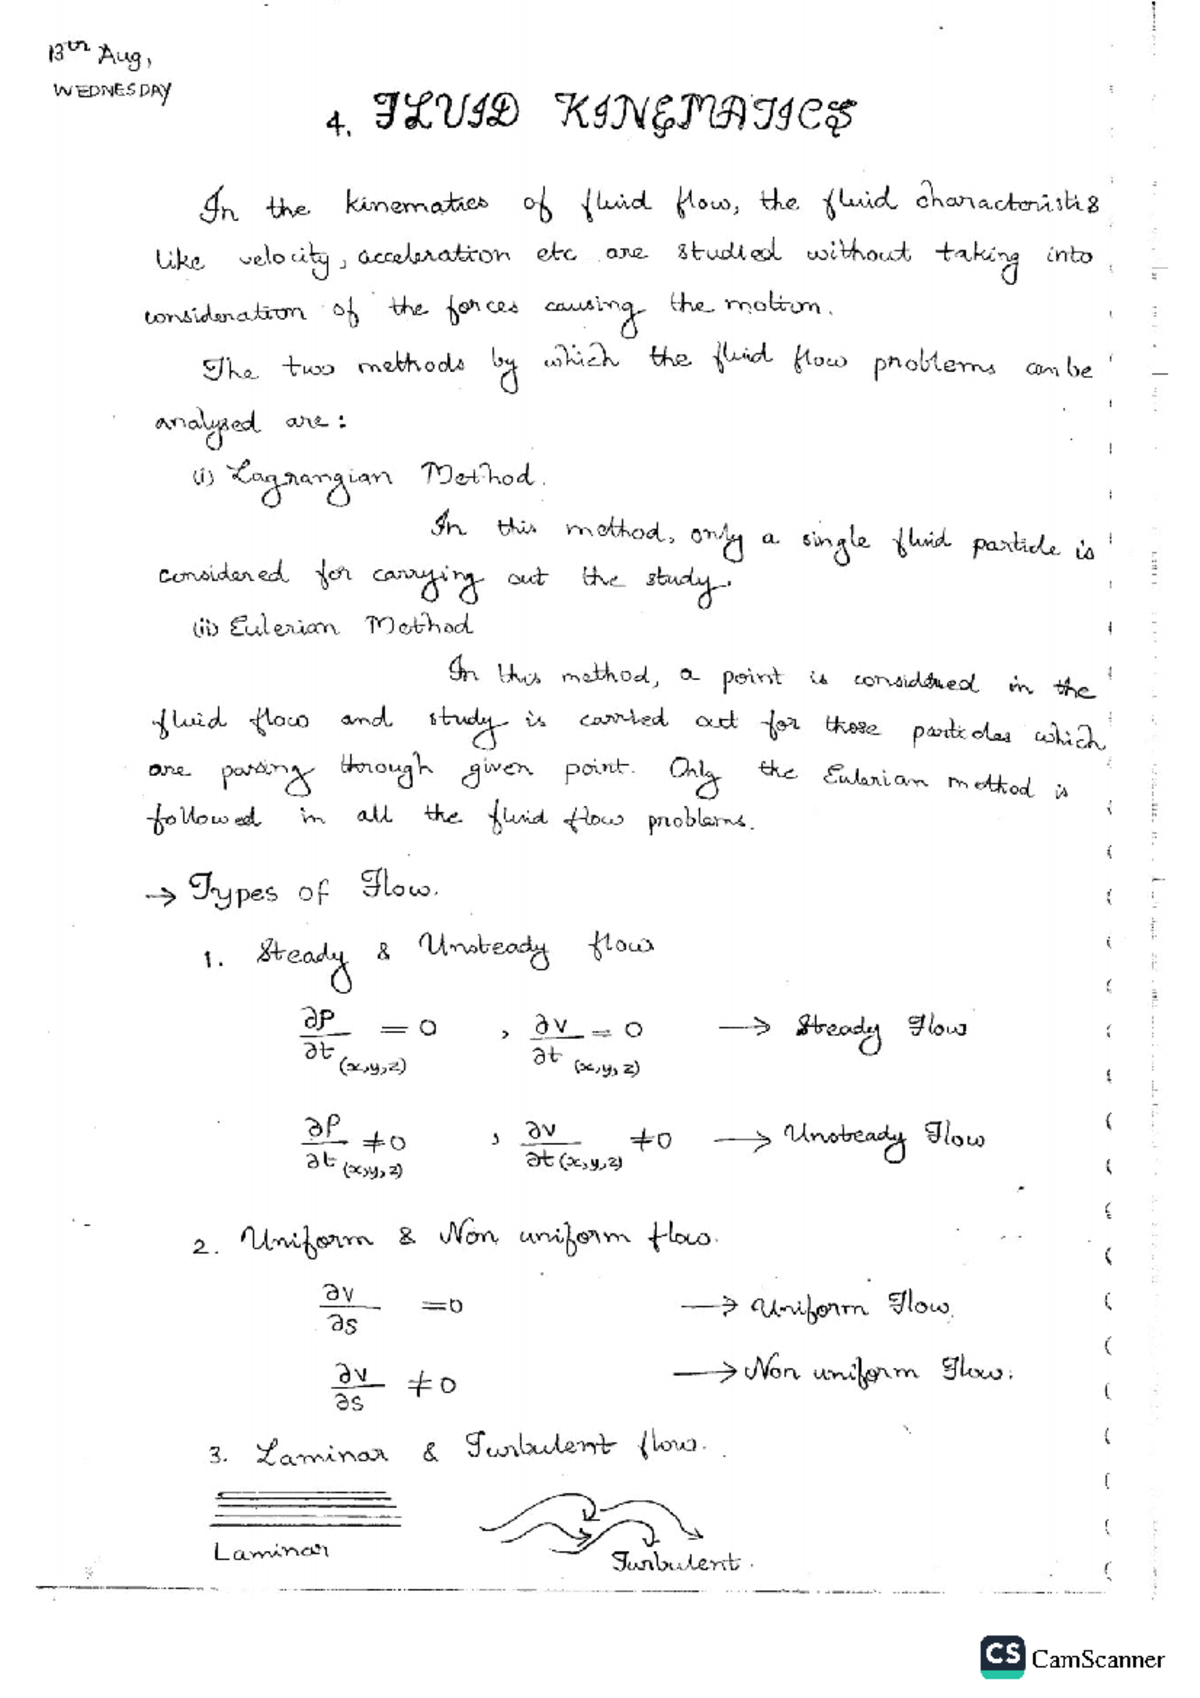 13th Aug,
WEDNESDAY
4. FLUID KINEMATICS
In the kinematics of fluid flow, the fluid characteristis
like velocity, acceleration etc are studied without taking into
consideration of the forces causing the motion.
The two methods by which the fluid flow problems can be
analysed are :
(i) Lagrangian Method.
In this method, only a single fluid particle is
considered for carrying out the study.
(ii) Eulerian Method
In this method, a point is considered in the
fluid flow and study is carried out for those particles which
are passing through given point. Only the Eulerian method is
followed in all the fluid flow problems.
→ Types of Flow.
1. Steady & Unsteady flow
∂P/∂t (x,y,z) = 0 , ∂v/∂t (x,y,z) = 0 → Steady Flow
∂P/∂t (x,y,z) ≠ 0 , ∂v/∂t (x,y,z) ≠ 0 → Unsteady Flow
2. Uniform & Non uniform flow.
∂v/∂s = 0 → Uniform Flow.
∂v/∂s ≠ 0 → Non uniform Flow.
3. Laminar & Turbulent flow.
Laminar
Turbulent.
CS CamScanner